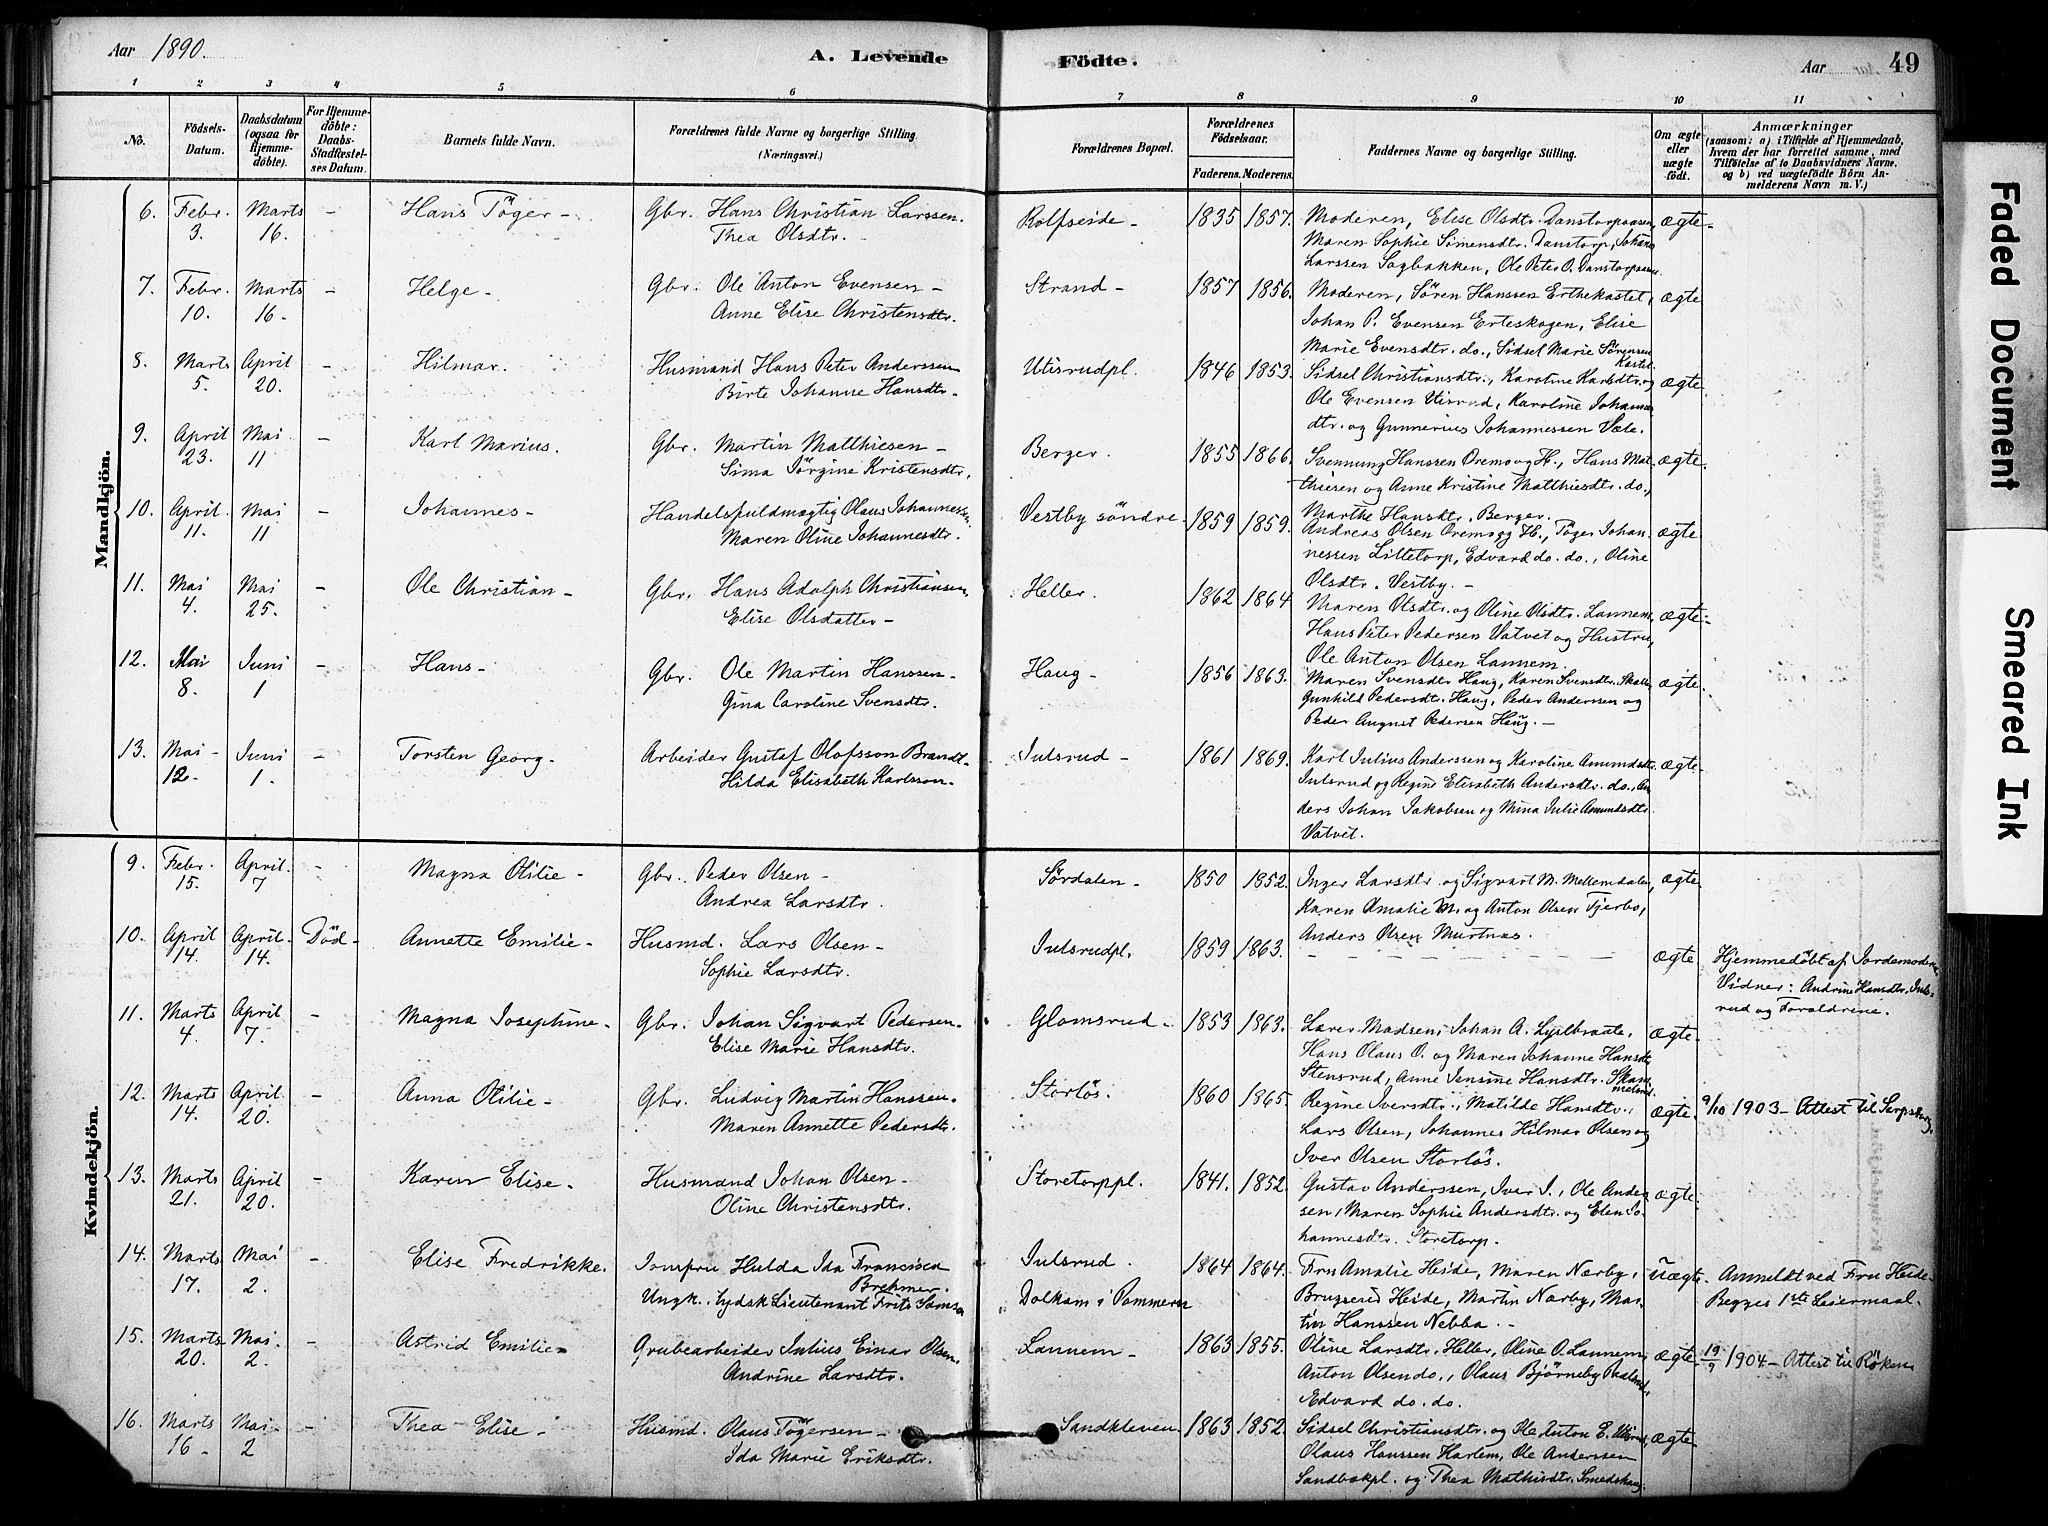 Aar 1890. A. Levende Födte. Aar 49
1 2 3 4 5 6 7 8 9 10 11
No. Födsels-Datum. Daabsdatum (ogsaa for Hjemme-döbte). For Hjemme-döbte: Daabs-Stadfæstel-ses Datum. Barnets fulde Navn. Forældrenes fulde Navne og borgerlige Stilling. (Næringsvei.) Forældrenes Bopæl. Forældrenes Födselsaar. Faderens. Moderens. Faddernes Navne og borgerlige Stilling. Om ægte eller uægte födt. Anmærkninger (saasom: a) i Tilfælde af Hjemmedaab, hvem der har forrettet samme, med Tilföielse af to Daabsvidners Navne, og b) ved uægtefödte Börn An-melderens Navn m. V.)
Mandkjön.
6. Febr. Marts - Hans Töger - Gbr. Hans Christian Larssen. Rolfseide - 1835 1857. Moderen, Elise Olsdtr. Danstorpaasen, ægte -
3. 16. Thea Olsdtr. - Maren Sophie Simensdtr. Danstorp, Johan
Larssen Sagbakken, Ole Peter O. Danstorpaasen.
7. Febr. Marts - Helge - Gbr. Ole Anton Evensen - Strand - 1857 1856. Moderen, Sören Hanssen Erthekastet, ægte
10. 16. Anne Elise Christensdtr. Johan P. Evensen Erteskogen, Elise
Marie Evensdtr. do., Sidsel Marie Sörensen Kastet.
8. Marts April - Hilmar. Husmand Hans Peter Anderssen Utisrudpl. 1846 1853. Sidsel Christiansdtr., Karoline Karlsdtr. og ægte
5. 20. Birte Johanne Hansdtr. - Ole Evensen Utisrud, Karoline Johannes
dtr. og Gunnerius Johannessen Væle.
9. April Mai - Karl Marius. Gbr. Martin Matthiesen - Berger. 1855 1866. Svennung Hanssen Oremo og H., Hans Mat- ægte.
23. 11 Sima Jörgine Kristensdtr. thiesen og Anne Kristine Matthiesdtr. do.,
Marthe Hansdtr. Berger.
10. April. Mai - Johannes - Handelsfuldmægtig Olaus Johannessen. Vestby söndre - 1859 1859. Andreas Olsen Oremo og H., Töger Johan- ægte
11. 11 Maren Oline Johannesdtr. nessen Littetorp, Edvard do. do., Oline
Olsdtr. Vestby. -
11. Mai Mai - Ole Christian - Gbr. Hans Adolph Christiansen Heller. 1862 1864 Maren Olsdtr. og Oline Olsdtr. Lannem, ægte -
4. 25. Elise Olsdatter - Hans Peter Pedersen Vatvet og Hustru,
Ole Anton Olsen Lannem.
12. Mai Juni - Hans - Gbr. Ole Martin Hanssen - Haug - 1856 1863. Maren Svensdtr. Haug, Karen Svensdtr. ægte
8. 1 Gina Caroline Svensdtr. Gunhild Pedersdtr. Haug, Peder Anderssen og
Peder August Pedersen Haug. -
13. Mai - Juni - Torsten Georg - Arbeider Gustaf Olofsson Brandt - Julsrud - 1861 1869. Karl Julius Anderssen og Karoline Amundsdtr. ægte
12. 1 Hilda Elisabeth Karlsson - Julsrud og Regine Elisabeth Andersdtr. do., An
ders Johan Jakobsen og Mina Julie Amundsdtr.
Vatvet.
Kvindekjön.
9. Febr. April - Magna Otilie - Gbr. Peder Olsen - Sördalen - 1850 1852. Inger Larsdtr. og Sigvart M. Mellemdalen, ægte
15. 7 Andrea Larsdtr. Karen Amalie M. og Anton Olsen Tjerbo,
Anders Olsen Murtnæs.
10. April April - Död - Annette Emilie - Husmd. Lars Olsen - Julsrudpl. 1859 1863. - - - - - ægte Hjemmedöbt af Jordemoderen
14. 14. Sophie Larsdtr. Vidner: Andrine Hansdtr. Juls-
rud og Foraldrene.
11. Marts April - Magna Josephine - Gbr. Johan Sigvart Pedersen - Glomsrud - 1853 1863. Lærer Madsen, Johan A. Lysbraate, ægte -
4. 7. Elise Marie Hansdtr. Hans Olaus O. og Maren Johanne Hansdtr.
Stensrud, Anne Jensine Hansdtr.
12. Marts April - Anna Otilie - Gbr. Ludvig Martin Hanssen. Storlös. 1860 1865. Regine Iversdtr., Matilde Hansdtr., ægte. 9/10 1903 - Attest til Sarpsborg.
14. 20. Maren Annette Pedersdtr. Lars Olsen, Johannes Hilmar Olsen og
Iver Olsen Storlös.
13. Marts April - Karen Elise. Husmand Johan Olsen - Storetorppl. 1841. 1852. Gustav Anderssen, Iver I., Ole Ander ægte
21. 20. Oline Christensdtr. sen, Maren Sophie Andersdtr. og Elen Jo
hannesdtr. Storetorp.
14. Marts Mai - Elise Fredrikke. Jomfru Hulda Ida Francisca Brehmer. Julsrud. 1864 1864. Fru Amalie Heide, Maren Nærby, Uægte Anmeldt ved Fru Heide -
17. 2. Ungk. tydsk Lieutenant Frits Samson Dolkam i Pommern Brugseid Heide, Martin Nærby, Mar- Begges 1ste Leiermaal
tin Hanssen Nebba. -
15. Marts Mai - Astrid Emilie - Grubearbeider Julius Einar Olsen. Lannem - 1863 1855. Oline Larsdtr. Heller, Oline O. Lannem, ægte 19/9 1904 - Attest til Röken
20. 2. Andrine Larsdtr. Anton Olsen do., Olaus Björneby
Edvard do. do.
16. Marts Mai - Thea Elise - Husmd. Olaus Tögersen - Sandkleven 1863 1852. Sidsel Christiansdtr. og Ole Anton E. Utisrud, ægte
16 - 2 Ida Marie Eriksdtr. Olaus Hanssen Harlem, Ole Anderssen
Sandbækpl. og Thea Mathisdtr. Smedshaug.
Faded Document
Smeared Ink